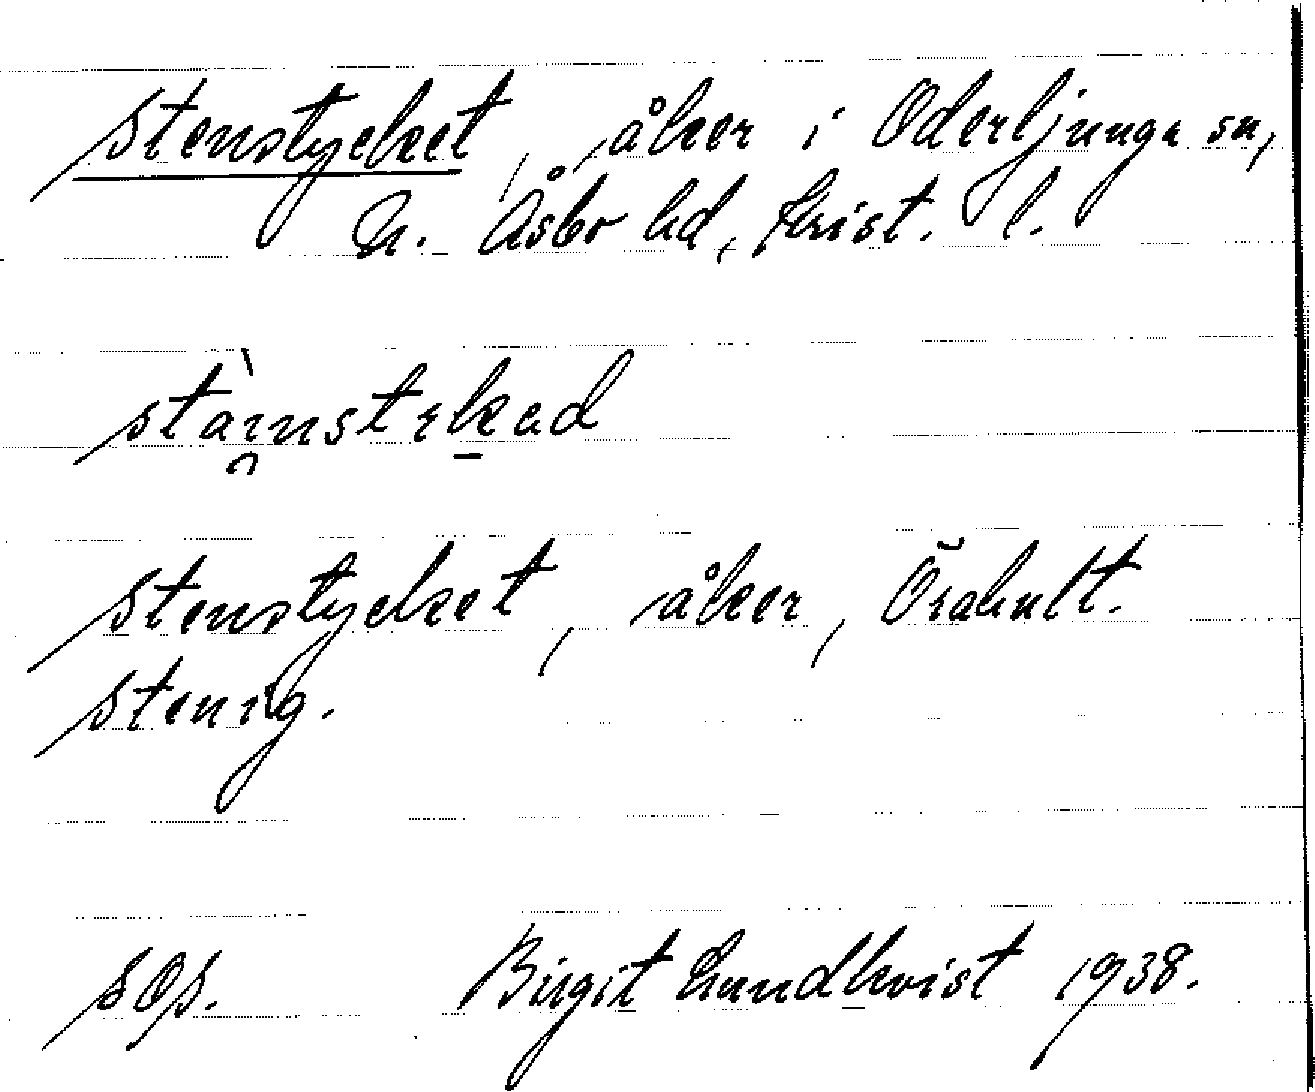 Stenstycket, åker i Oderljunga sn,
N. Åsbo hd, Krist. l.
stàı̯nstɛk̠əd
Stenstycket, åker, Örahult.
Stenig.
sOs. Birgit Lundkvist 1938.